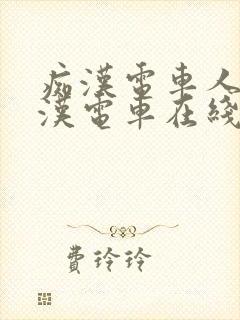 痴漢電車人
漢電車在綫
費玲玲